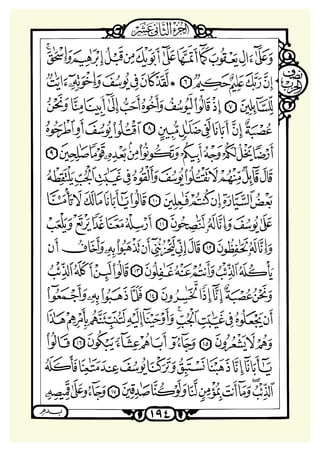 الجزء الثاني عشر
نصف الحزب
وَعَلَىٰٓ ءَالِ يَعْقُوبَ كَمَآ أَتَمَّهَا عَلَىٰٓ أَبَوَيْكَ مِن قَبْلُ إِبْرَٰهِيمَ وَإِسْحَٰقَ
إِنَّ رَبَّكَ عَلِيمٌ حَكِيمٌ ٦ لَّقَدْ كَانَ فِي يُوسُفَ وَإِخْوَتِهِۦٓ ءَايَٰتٌ
لِّلسَّآئِلِينَ ٧ إِذْ قَالُوا۟ لَيُوسُفُ وَأَخُوهُ أَحَبُّ إِلَىٰٓ أَبِينَا مِنَّا وَنَحْنُ
عُصْبَةٌ إِنَّ أَبَانَا لَفِي ضَلَٰلٍ مُّبِينٍ ٨ ٱقْتُلُوا۟ يُوسُفَ أَوِ ٱطْرَحُوهُ
أَرْضًا يَخْلُ لَكُمْ وَجْهُ أَبِيكُمْ وَتَكُونُوا۟ مِنۢ بَعْدِهِۦ قَوْمًا صَٰلِحِينَ ٩
قَالَ قَآئِلٌ مِّنْهُمْ لَا تَقْتُلُوا۟ يُوسُفَ وَأَلْقُوهُ فِي غَيَٰبَتِ ٱلْجُبِّ يَلْتَقِطْهُ
بَعْضُ ٱلسَّيَّارَةِ إِن كُنتُمْ فَٰعِلِينَ ١٠ قَالُوا۟ يَٰٓأَبَانَا مَالَكَ لَا تَأْمَ۫نَّا
عَلَىٰ يُوسُفَ وَإِنَّا لَهُۥ لَنَٰصِحُونَ ١١ أَرْسِلْهُ مَعَنَا غَدًا يَرْتَعْ وَيَلْعَبْ
وَإِنَّا لَهُۥ لَحَٰفِظُونَ ١٢ قَالَ إِنِّي لَيَحْزُنُنِيٓ أَن تَذْهَبُوا۟ بِهِۦ وَأَخَافُ أَن
يَأْكُلَهُ ٱلذِّئْبُ وَأَنتُمْ عَنْهُ غَٰفِلُونَ ١٣ قَالُوا۟ لَئِنْ أَكَلَهُ ٱلذِّئْبُ
وَنَحْنُ عُصْبَةٌ إِنَّآ إِذًا لَّخَٰسِرُونَ ١٤ فَلَمَّا ذَهَبُوا۟ بِهِۦ وَأَجْمَعُوٓا۟
أَن يَجْعَلُوهُ فِي غَيَٰبَتِ ٱلْجُبِّ وَأَوْحَيْنَآ إِلَيْهِ لَتُنَبِّئَنَّهُم بِأَمْرِهِمْ هَٰذَا
وَهُمْ لَا يَشْعُرُونَ ١٥ وَجَآءُوٓ أَبَاهُمْ عِشَآءً يَبْكُونَ ١٦ قَالُوا۟
يَٰٓأَبَانَآ إِنَّا ذَهَبْنَا نَسْتَبِقُ وَتَرَكْنَا يُوسُفَ عِندَ مَتَٰعِنَا فَأَكَلَهُ
ٱلذِّئْبُ وَمَآ أَنتَ بِمُؤْمِنٍ لَّنَا وَلَوْ كُنَّا صَٰدِقِينَ ١٧ وَجَآءُو عَلَىٰ قَمِيصِهِۦ
١٩٤
بدم